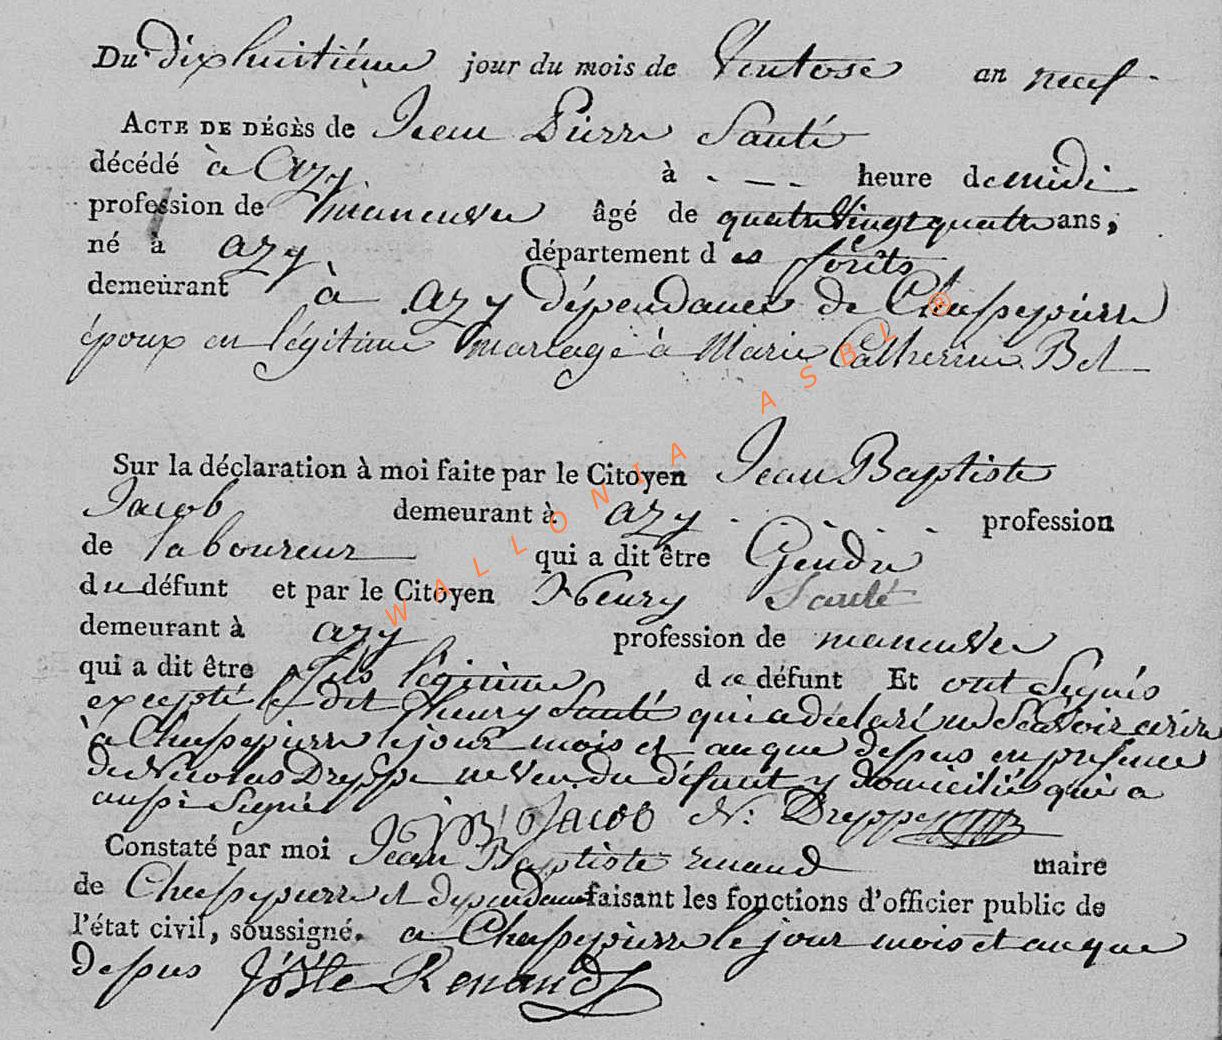 Du dix huitiéme jour du mois de Ventose an neuf
ACTE DE DÉCÈS de Jean Pierre Santé
décédé à Azy à - - - heure de midi
profession de maneuvre âgé de quatre Vingt quatre ans,
né à azy département des forêts
demeurant à azy dépendance de Chassepierre
époux en légitime mariage à Marie Catherine Bet
Sur la déclaration à moi faite par le Citoyen Jean Baptiste
Jacob demeurant à azy - - - profession
de laboureur qui a dit être Gendre
du défunt et par le Citoyen Henry Santé
demeurant à azy profession de maneuvre
qui a dit être fils légitime du défunt Et ont Signés
excepté le dit Henry Santé qui a déclaré ne Scavoir écrire
à Chassepierre le jour mois et an que dessus en presence
de Nicolas Dreppe neveu du défunt y domicilié qui a
aussi Signé Jacob N: Dreppe
Constaté par moi Jean Baptiste renaud maire
de Chassepierre et dependance faisant les fonctions d'officier public de
l'état civil, soussigné. a Chassepierre le jour mois et an que
dessus J Bste Renaud
WALLONIA ASBL ®